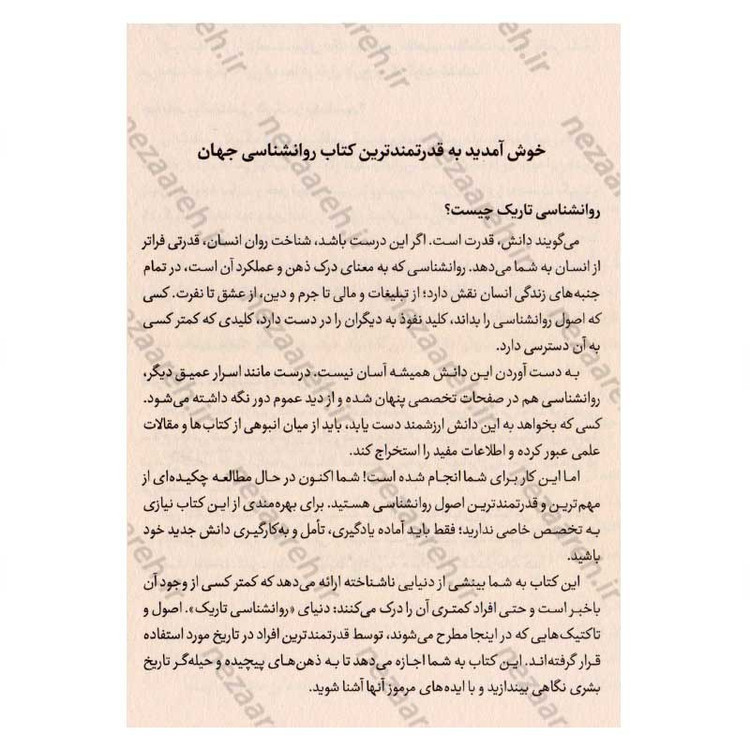 خوش آمدید به قدرتمندترین کتاب روانشناسی جهان
روانشناسی تاریک چیست؟
می‌گویند دانش، قدرت است. اگر این درست باشد، شناخت روان انسان، قدرتی فراتر
از انسان به شما می‌دهد. روانشناسی که به معنای درک ذهن و عملکرد آن است، در تمام
جنبه‌های زندگی انسان نقش دارد؛ از تبلیغات و مالی تا جرم و دین، از عشق تا نفرت. کسی
که اصول روانشناسی را بداند، کلید نفوذ به دیگران را در دست دارد، کلیدی که کمتر کسی
به آن دسترسی دارد.
به دست آوردن این دانش همیشه آسان نیست. درست مانند اسرار عمیق دیگر،
روانشناسی هم در صفحات تخصصی پنهان شده و از دید عموم دور نگه داشته می‌شود.
کسی که بخواهد به این دانش ارزشمند دست یابد، باید از میان انبوهی از کتاب‌ها و مقالات
علمی عبور کرده و اطلاعات مفید را استخراج کند.
اما این کار برای شما انجام شده است! شما اکنون در حال مطالعه چکیده‌ای از
مهم‌ترین و قدرتمندترین اصول روانشناسی هستید. برای بهره‌مندی از این کتاب نیازی
به تخصص خاصی ندارید؛ فقط باید آماده یادگیری، تأمل و به‌کارگیری دانش جدید خود
باشید.
این کتاب به شما بینشی از دنیایی ناشناخته ارائه می‌دهد که کمتر کسی از وجود آن
باخبر است و حتی افراد کمتری آن را درک می‌کنند: دنیای «روانشناسی تاریک». اصول و
تاکتیک‌هایی که در اینجا مطرح می‌شوند، توسط قدرتمندترین افراد در تاریخ مورد استفاده
قرار گرفته‌اند. این کتاب به شما اجازه می‌دهد تا به ذهن‌های پیچیده و حیله‌گر تاریخ
بشری نگاهی بیندازید و با ایده‌های مرموز آنها آشنا شوید.
nezaareh.ir